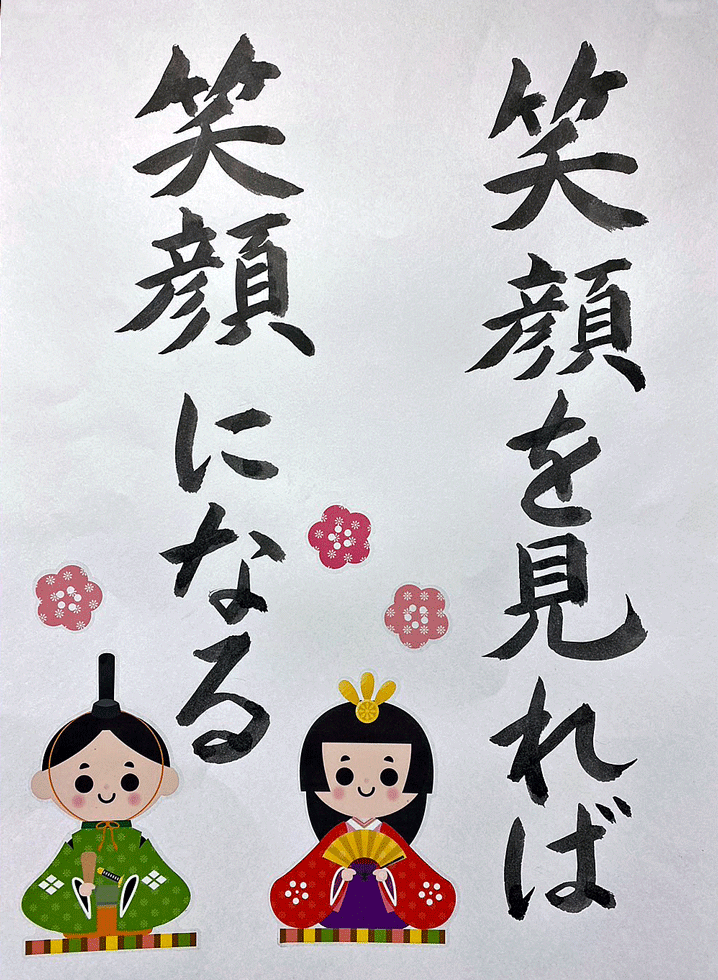 笑顔を見れば
笑顔になる